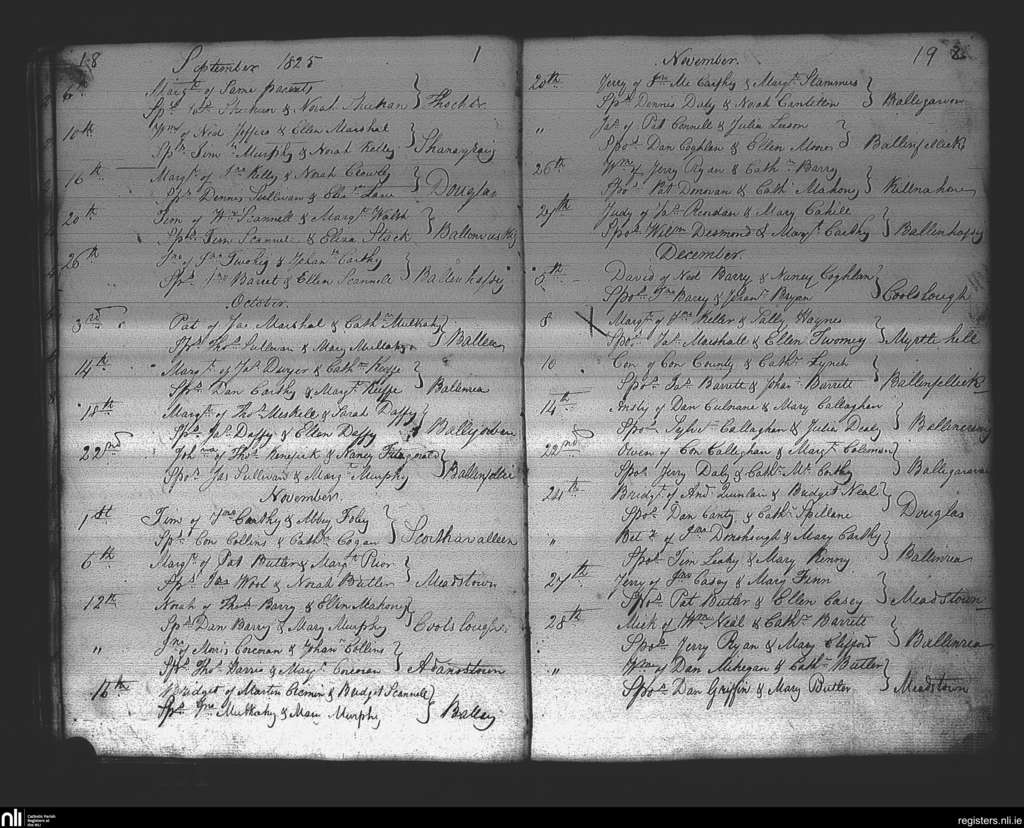 18 September 1825 1
6th Margt of Same parents
Sprs Jn Sheehan & Norah Mulkan } Thocher
10th Wm of Ned Joffrs & Ellen Marshal
Sprs Tim Murphy & Norah Kelly } Shanagraig
16th Margt of Jno Kelly & Norah Crowly
Sprs Dennis Sullivan & Eliz Lane } Douglas
20th Tim of Wm Scannell & Margt Walsh
Sprs Tim Scannel & Eliza Stack } Ballinrus
26th Jno of Jno Twohig & Johana Carthy
Sprs Jno Barret & Ellen Scannell } Ballinhassig
October.
3rd Pat of Jas Marshal & Cathn Mulkahy
Sprs Thos Sullivan & Mary Mulkahy } Ballea
14th Margt of Jas Dwyer & Cathn Keeffe
Sprs Dan Carthy & Margt Keeffe } Ballinrea
18th Margt of Thos Meskell & Norah Daffy
Sprs Jas Daffy & Ellen Daffy } Ballyorban
22nd Johna of Thos Kenefick & Nancy Fitzgerald
Sprs Jas Sullivan & Margt Murphy } Ballinfellic
November.
1st Tim of Jno Carthy & Abby Foley
Sprs Con Collins & Cathn Cogan } Scorthavalleen
6th Margt of Pat Butler & Margt Prior
Sprs Jas Wool & Norah Butler } Meadstown
12th Norah of Thos Barry & Ellen Mahony
Sprs Dan Barry & Mary Murphy } Coolslough
" Jno of Moris Corcoran & Johan Collins
Sprs Thos Harris & Mary Corcoran } Adamstown
16th Bridget of Martin Cremin & Bridget Scannell
Sprs Jno Mulkahy & Mary Murphy } Ballea
November. 19 2
20th Jerry of Jno Mc Carthy & Margt Stammers
Spors Dennis Daly & Norah Cantillon } Balligarvan
" Jas of Pat Connell & Julia Luson
Spors Dan Coghlan & Ellen Mones } Ballinfellick
26th Wm of Jerry Ryan & Cathn Barry
Spors Pat Donovan & Cath Mahony } Ballinahina
27th Judy of Jas Riordan & Mary Cahill
Spors Willm Desmond & Margt Carthy } Ballinhassig
December.
5th David of Ned Barry & Nancy Coghlan
Spors Jno Barry & Johan Bryan } Coolslough
8 X Margt of Jno Keller & Sally Haynes
Spors Jas Marshall & Ellen Twomey } Myrtle hill
10 Con of Con County & Cathn Lynch
Spors Jas Barrett & Johan Barrett } Ballinfellick
14th Ansty of Dan Culnane & Mary Callaghan
Spors Sylvr Callaghan & Julia Dealy } Ballincrang
22nd Owen of Con Callaghan & Margt Coleman
Spors Jerry Daly & Cathn Mc Carthy } Balligarvan
24th Bridgt of Andw Quinlan & Bridget Neal
Spors Dan Canty & Cathn Spellane } Douglas
" Bet of Jno Donohough & Mary Carthy
Spors Tim Leahy & Mary Kenny } Ballinrea
27th Jerry of Jno Casey & Mary Finn
Spors Pat Butler & Ellen Casey } Meadstown
28th Mick of Wm Neal & Cathn Barrett
Spors Jerry Ryan & Mary Clifford } Ballinrea
" of Dan Mehegan & Cathn Butler
Spors Dan Griffin & Mary Butler } Meadstown
nli Catholic Parish Registers at the NLI
registers.nli.ie